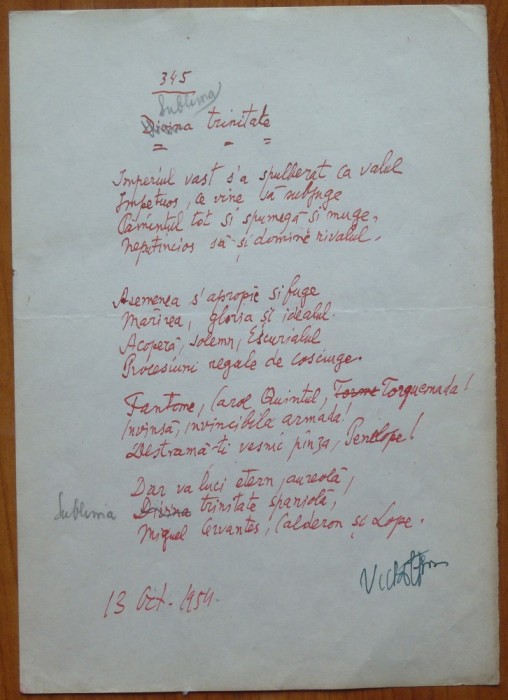 345
Sublima
Divina trinitate
Imperiul vast s'a spulberat ca valul
Impetuos, ce vine să subjuge
Pămîntul tot și spumegă și muge,
Neputincios să-și domine rivalul.
Asemenea s'apropie și fuge
Mărirea, gloria și idealul.
Acoperă, solemn, Escurialul
Procesiuni regale de cosciuge.
Fantome, Carol Quintul, Torme Torquemada!
Invinsă, invincibila armada!
Destramă-ți vesnic pînza, Penelope!
Dar va luci etern, aureolă,
Sublima Divina trinitate spaniolă,
Miguel Cervantes, Calderon și Lope.
13 Oct. 1954.